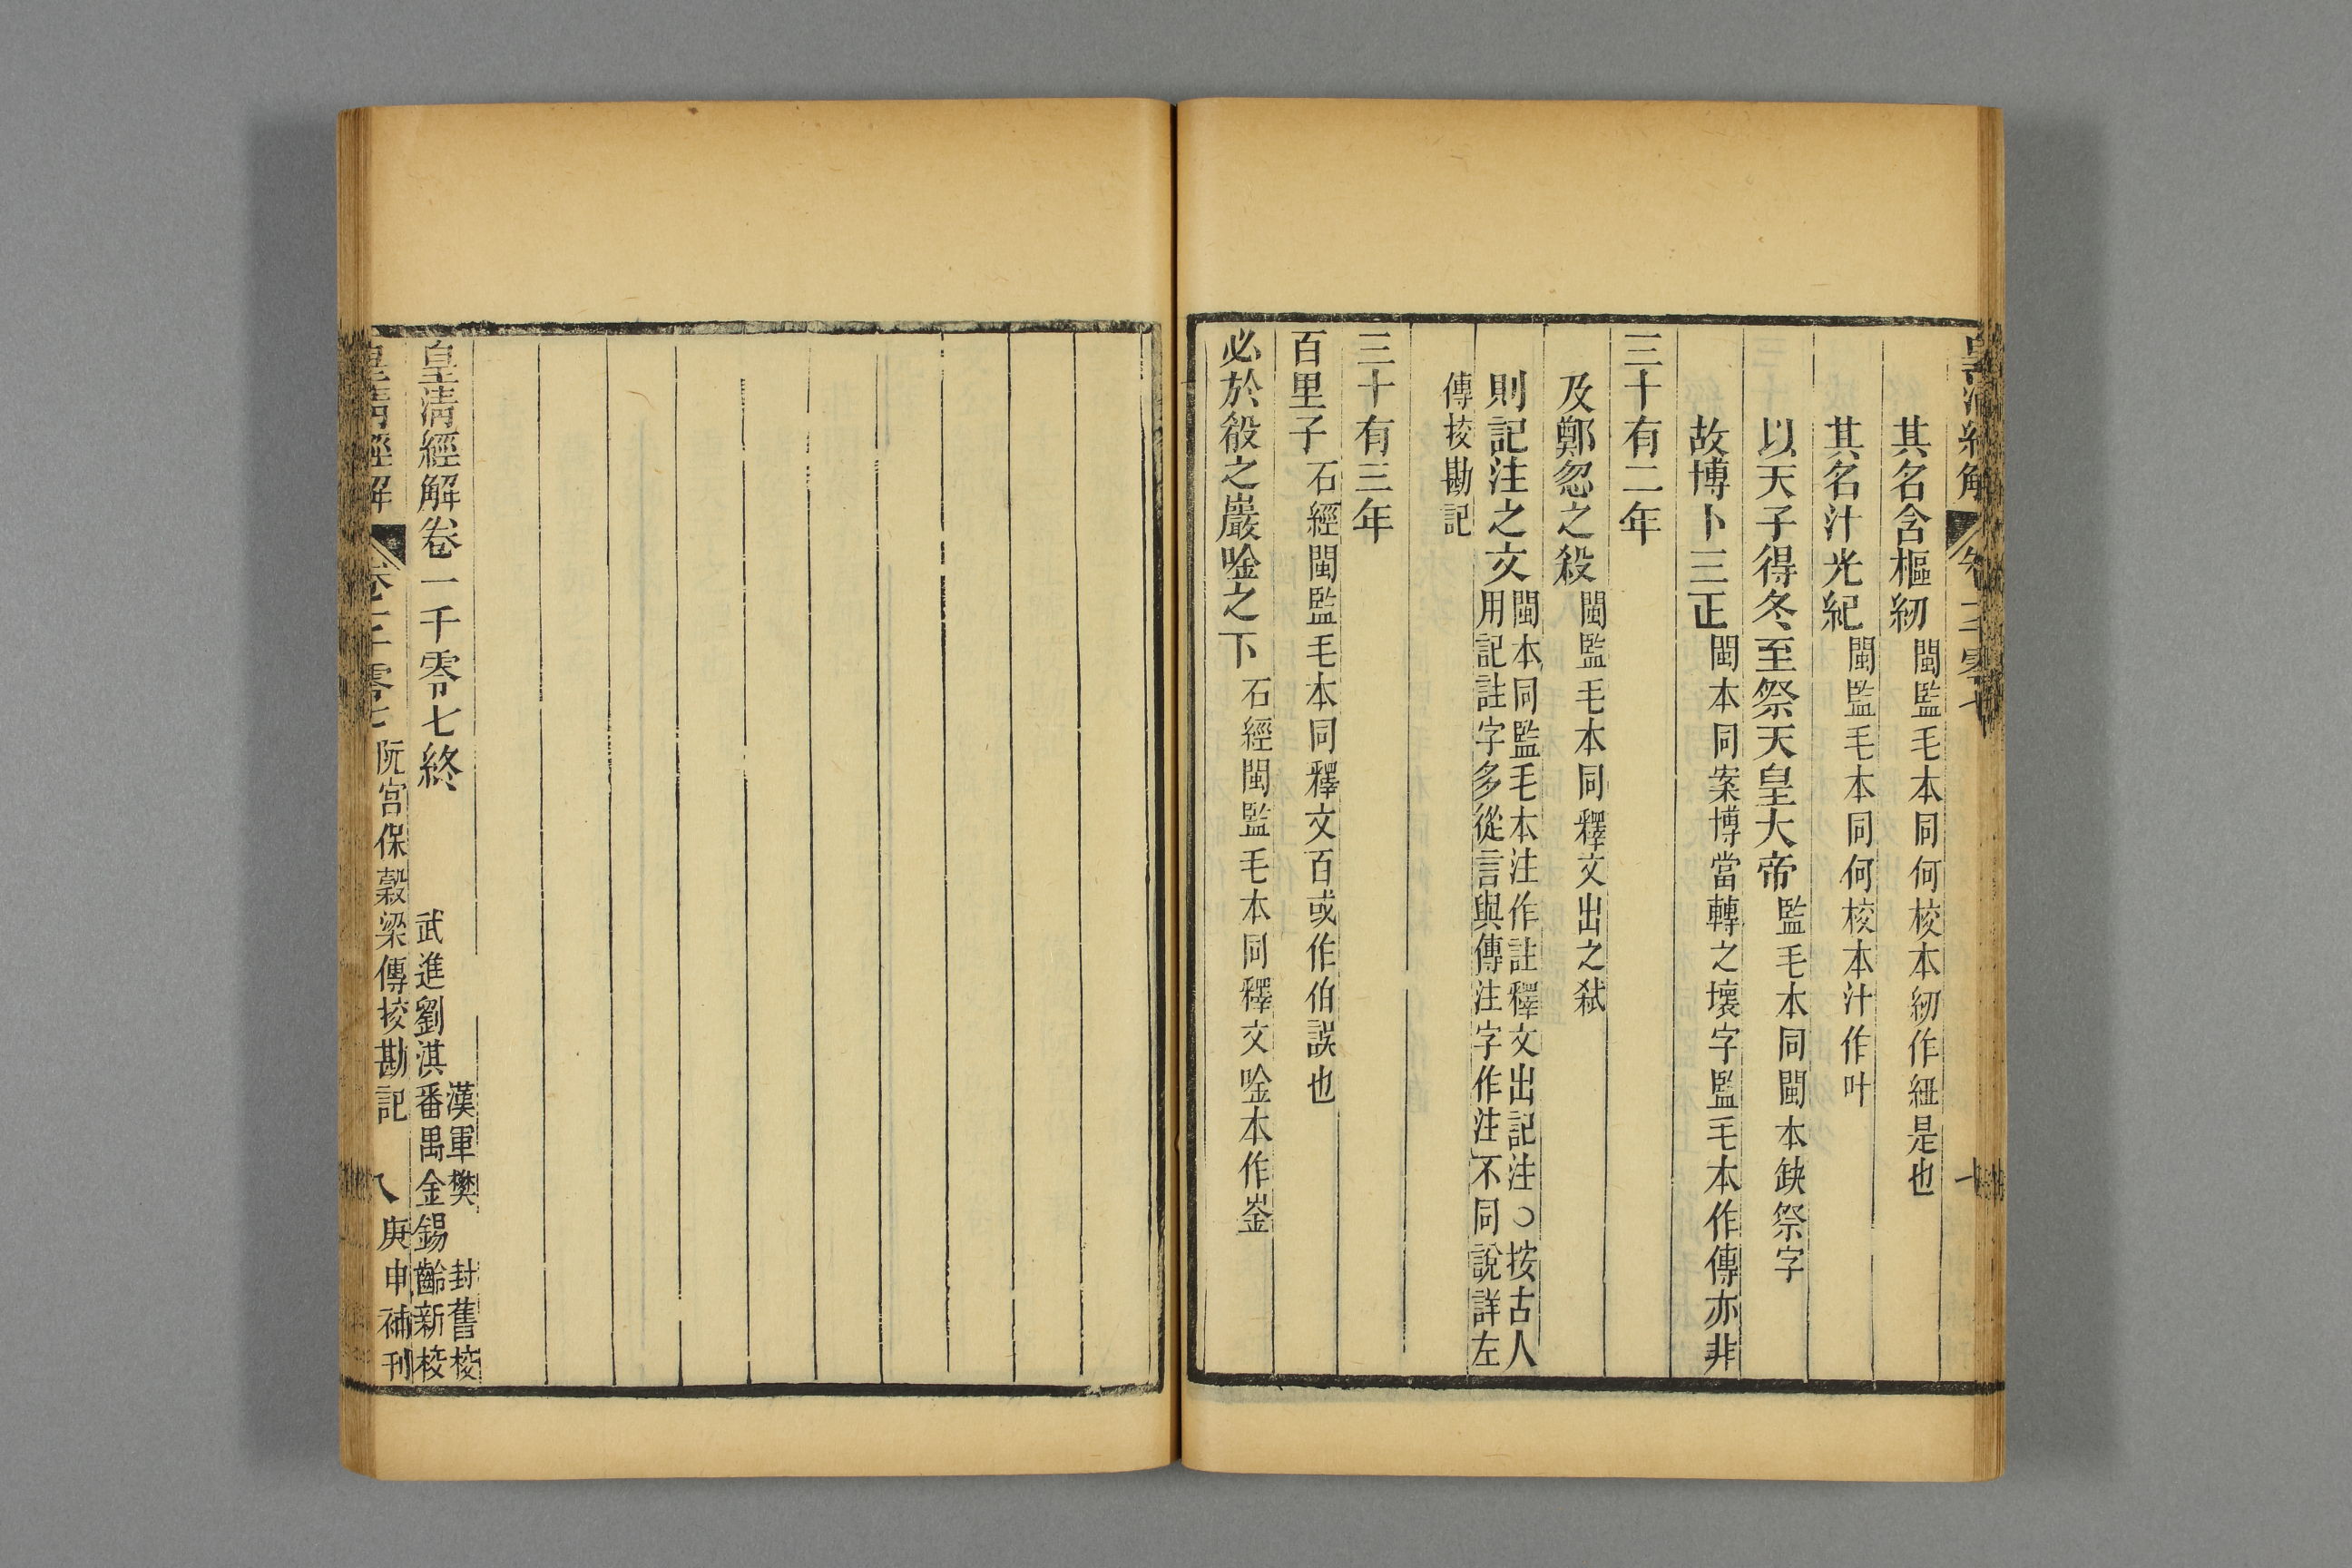 其名含樞紐閩監毛本同何校本紉作紐是也
其名汁光紀閩監毛本同何校本汁作叶
以天子得冬至祭天皇大帝監毛本同閩本缺祭字
故博卜三正閩本同案博當轉之壞字監毛本作傳亦非
三十有二年
及鄭忽之殺閩監毛本同釋文出之弑
則記注之文閩本同監毛本注作註釋文出記注○按古人
用記註字多從言與傳注字作注不同說詳左
傳挍勘記
三十有三年
百里子石經閩監毛本同釋文百或作伯誤也
必於殽之巖唫之下石經閩監毛本同釋文唫本作崟
皇淸經解卷一千零七終
漢軍樊封舊挍
武進劉淇番禺金錫齡新挍
皇淸經解
卷一千零七
阮宮保穀梁傳挍勘記
八
庚申補刊